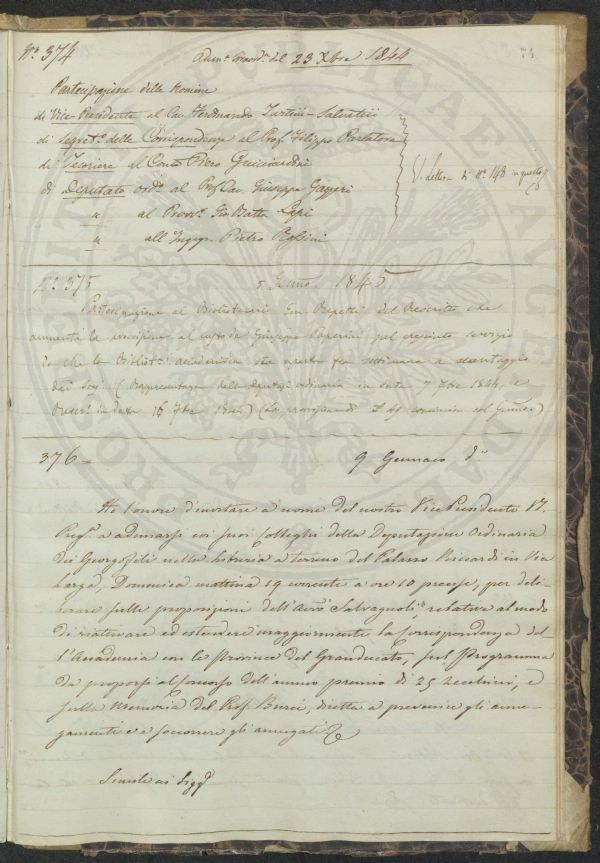 Nº. 374
Adun.ª straord.ª del 23 Xbre 1844
74
Partecipazione delle Nomine
di Vice-Presidente al Cav. Ferdinando Tartini-Salvatici
di Segret.º delle Corrispondenze al Prof. Filippo Parlatore
di Tesoriere al Conte Piero Guicciardini
di Deputato ord.º al Prof. Cav. Giuseppe Gazzeri
" al Prov.e Gio Batta Lapi
" all'Ingegn. Pietro Rossini
V. lettera di Nº 148 in questo
Nº. 375
5. Genno 1845
Partecipazione al Bibliotecario Em. Repetti del Rescritto che
aumenta la provvisione al custode Giuseppe Paperini pel cresciuto servizio
da che la Bibliot.ª accademica sta aperta per settimana a vantaggio
dei Soci (Rappresentanza della Deputaz.e ordinaria in data 7 Xbre 1844, e
Rescr.º in data 16 Xbre 1844) (La provvisione di comincia col Gennaio)
376 =
9 Gennaio dº
Ho l'onore d'invitare a nome del nostro Vice Presidente VS.
Preg.ª a adunarsi coi suoi Colleghi della Deputazione Ordinaria
dei Georgofili nella libreria a terreno del Palazzo Riccardi in Via
Larga, Domenica mattina 19 corrente a ore 10 precise, per deli-
berare sulle proposizioni dell'Avv.º Salvagnoli, relative al modo
di riattivare ed estendere maggiormente la Corrispondenza del-
l'Accademia con le Province del Granducato, sul Programma
da proporsi al Concorso dell'annuo premio di 25 zecchini, e
sulla Memoria del Prof. Burci, diretta a prevenire gli anne-
gamenti e a soccorrere gli annegati
Simile ai Sigg.ri